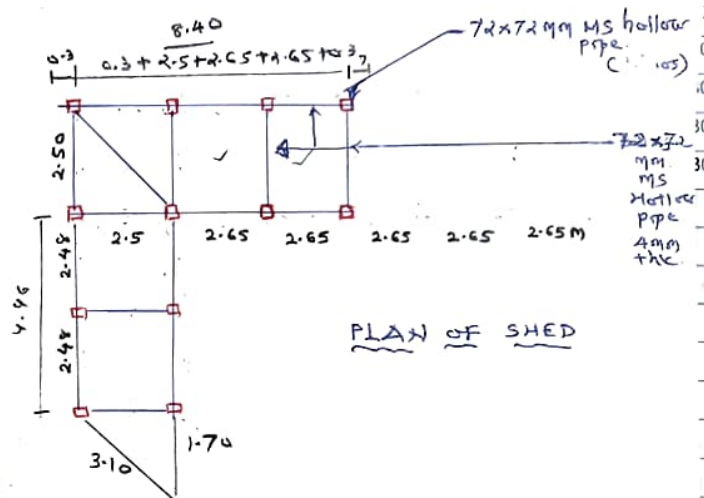 8.40
0.3 0.3 + 2.5+2.65+2.65+0.3
72x72mm MS hollow
pipe
2.50
72x72
mm
MS
Hollow
pipe
4mm
thk
2.5 2.65 2.65 2.65 2.65 2.65M
2.48
4.96
2.48
PLAN OF SHED
3.10 1.70